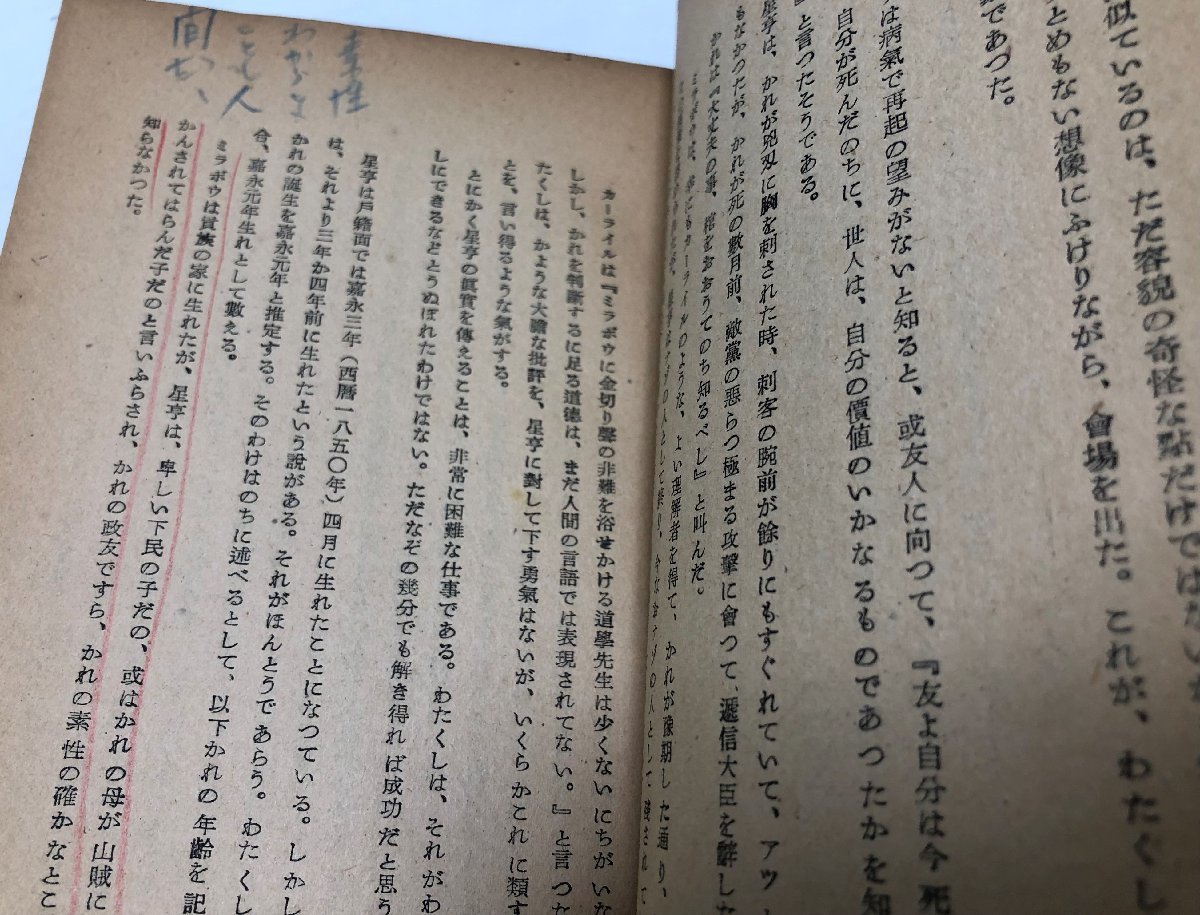 似ているのは、ただ容貌の奇怪な點だけではない
とめもない想像にふけりながら、會場を出た。これが、わたくし
であつた。
は病氣で再起の望みがないと知ると、或友人に向つて、『友よ自分は今死
自分が死んだのちに、世人は、自分の價値のいかなるものであつたかを知
』と言つたそうである。
星亨は、かれが兇刄に胸を刺された時、刺客の腕前が餘りにもすぐれていて、アッ
もなかつたが、かれが死の數月前、敵黨の惡らつ極まる攻擊に會つて、遞信大臣を辭した
かれは『大丈夫の事、棺をおおうてのち知るべし』と叫んだ。
カーライルのような、よい理解者を得て、かれが豫期した通り、
カーライルは『ミラボウに金切り聲の非難を浴せかける道學先生は少くないにちがいな
しかし、かれを判斷するに足る道德は、まだ人間の言語では表現されてない。』と言つた
たくしは、かような大膽な批評を、星亨に對して下す勇氣はないが、いくらかこれに類す
とを、言い得るような氣がする。
とにかく星亨の眞實を傳えることは、非常に困難な仕事である。わたくしは、それがわ
しにできるなどとうぬぼれたわけではない。ただなぞの幾分でも解き得れば成功だと思う
星亨は戶籍面では嘉永三年(西曆一八五〇年)四月に生れたことになつている。しかし
は、それより三年か四年前に生れたという說がある。それがほんとうであらう。わたくし
かれの誕生を嘉永元年と推定する。そのわけはのちに述べるとして、以下かれの年齡を記
合、嘉永元年生れとして數える。
ミラボウは貴族の家に生れたが、星亨は、卑しい下民の子だの、或はかれの母が山賊に
かんされてはらんだ子だのと言いふらされ、かれの政友ですら、かれの素性の確かなとこ
知らなかつた。
素性
わからな
こと人